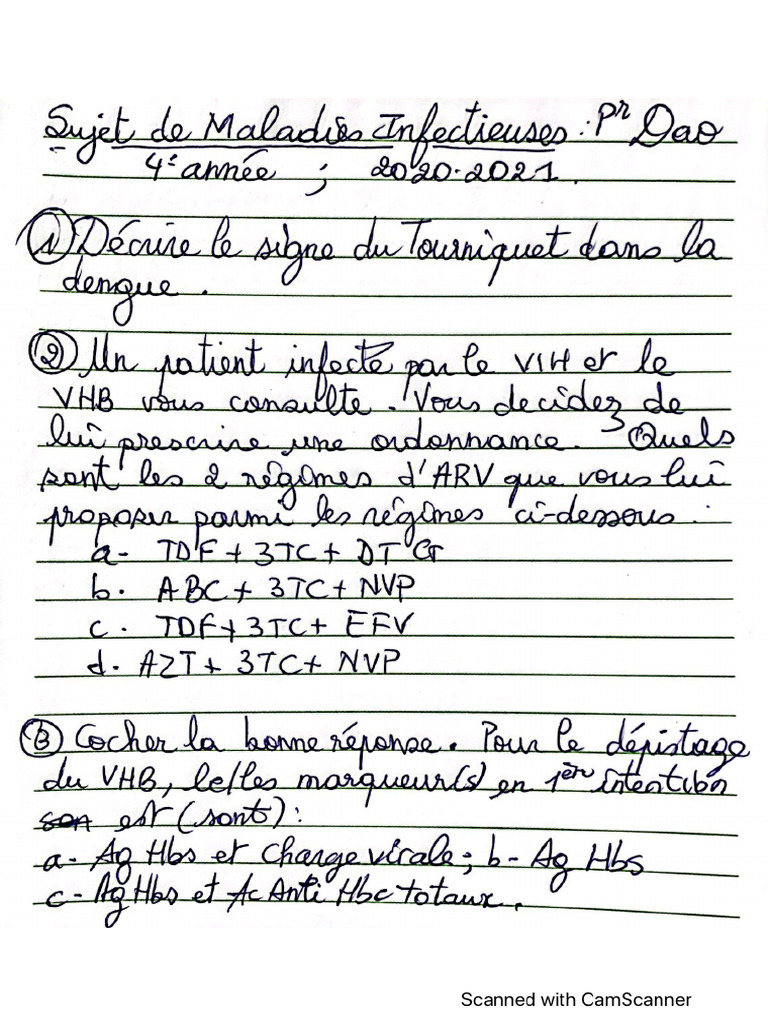 Sujet de Maladies Infectieuses : Pr Dao
4e année ; 2020-2021.
1) Décrire le signe du Tourniquet dans la
dengue.
2) Un patient infecté par le VIH et le
VHB vous consulte. Vous decidez de
lui prescrire une ordonnance. Quels
sont les 2 régimes d'ARV que vous lui
proposer parmi les régimes ci-dessous :
a- TDF + 3TC + DTG
b. ABC + 3TC + NVP
c. TDF + 3TC + EFV
d. AZT + 3TC + NVP
3) Cocher la bonne réponse. Pour le dépistage
du VHB, le/les marqueur(s) en 1ère intention
est (sont) :
a- Ag Hbs et charge virale ; b- Ag Hbs
c- Ag Hbs et Ac Anti Hbc totaux.
Scanned with CamScanner